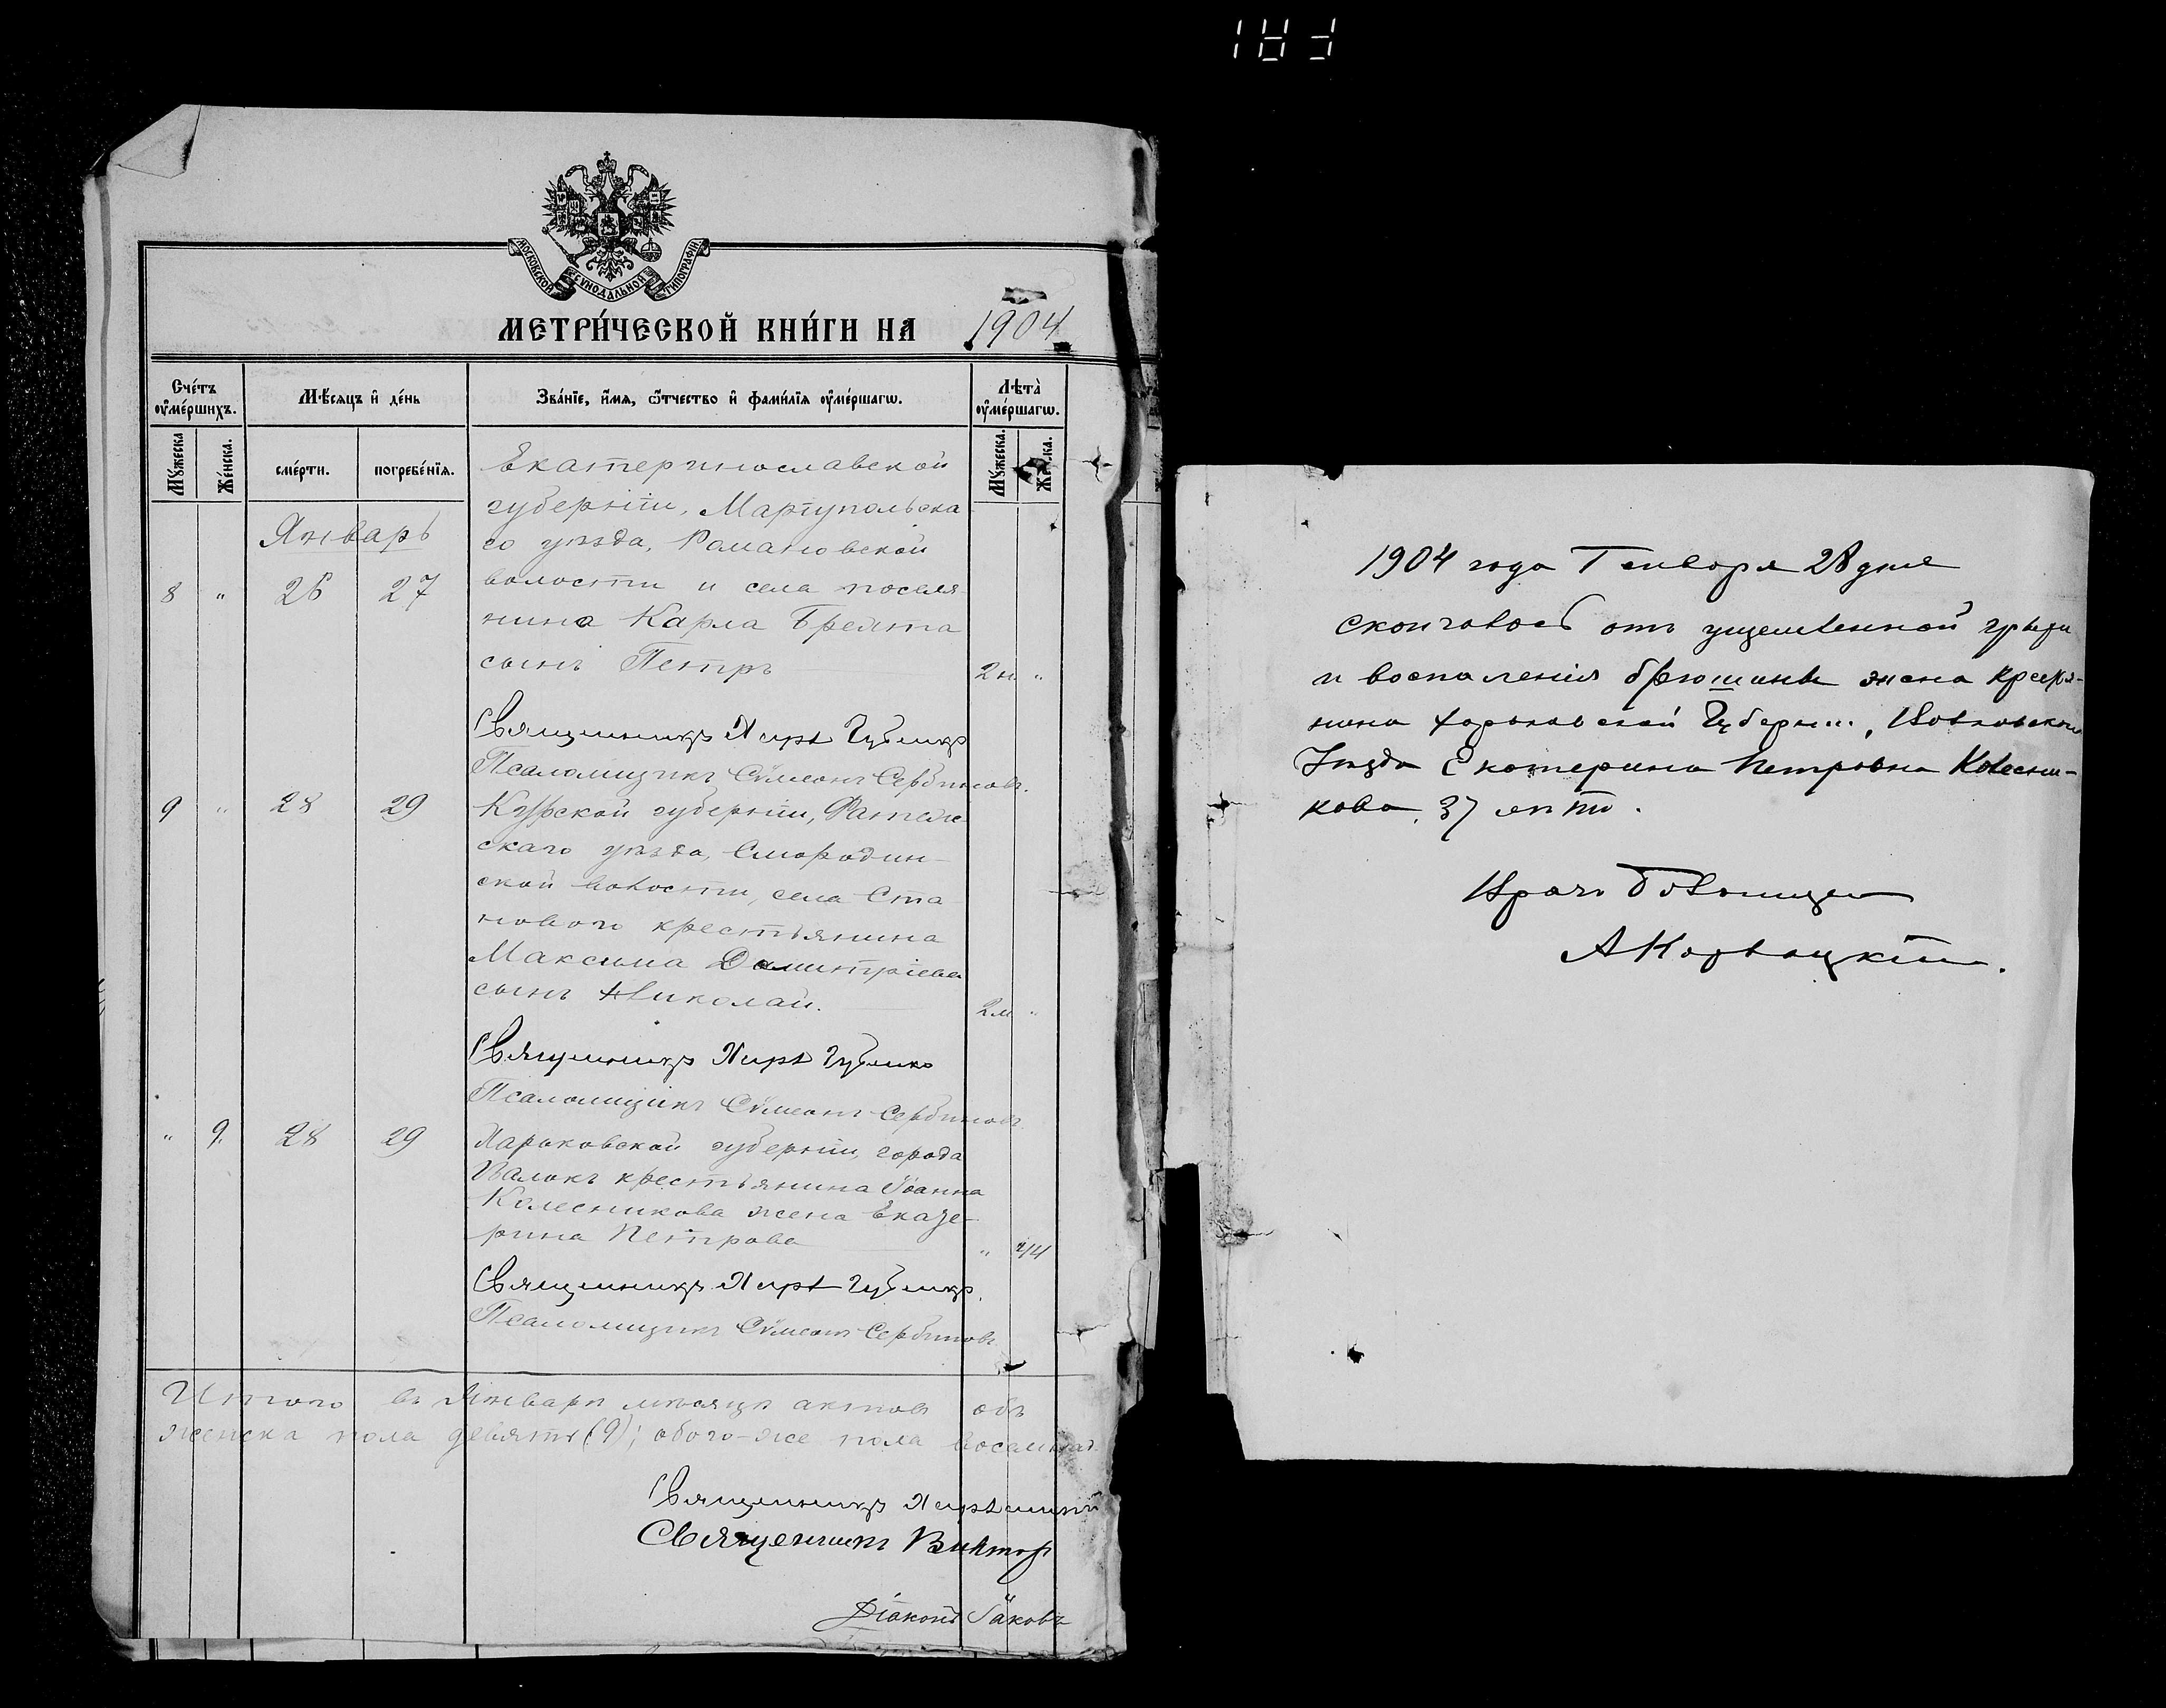 МОСКОВСКОЙ СУНОДАЛЬНОЙ ТИПОГРАФІИ
МЕТРИ́ЧЕСКОЙ КНИ́ГИ НА 1904
Сче́тъ оу҆ме́ршихъ.
Мѣ́сяцъ и҆ де́нь
Зва́нїе, и҆́мя, ѻ҆́тчество и҆ фами́лїя оу҆ме́ршагѡ.
Лѣ̀та оу҆ме́ршагѡ.
Мꙋ́жеска
Же́нска.
сме́рти.
погребе́нїя.
Мꙋ́жеска.
Январь
Екатеринославской
губерніи, Маріупольска
го уѣзда, Романовской
8 " 26 27 волости и села поселя
нина Карла
сынъ Петръ 2н "
Священникъ
Псаломщикъ Сѵмеонъ Сербиновъ.
9 " 28 29 Курской губерніи, Фатеж
скаго уѣзда, Смородин-
ской волости, села Ста
нового крестьянина
Максима Димитріева
сынъ Николай. 2м "
Священникъ
Псаломщикъ Сѵмеонъ Сербиновъ
" 9. 28 29 Харьковской губерніи, города
Валокъ крестьянина Іоанна
Колесникова жена Екате-
рина Петрова "
Священникъ
Псаломщикъ Сѵмеонъ Сербиновъ
Итого въ Январѣ мѣсяцѣ актовъ объ
женска пола девять (9); обоего-же пола восемнад-
Священникъ
Священникъ Виктор
Діаконъ Іаковъ
1904 года Генваря 28 дня
скончалась отъ ущемленной грыжи
и воспаленія брюшины жена крестья-
нина Харьковской Губерніи, Валковскаго
Уезда Екатерина Петровна Колесни-
кова, 37 лѣтъ.
Врачъ Больницы